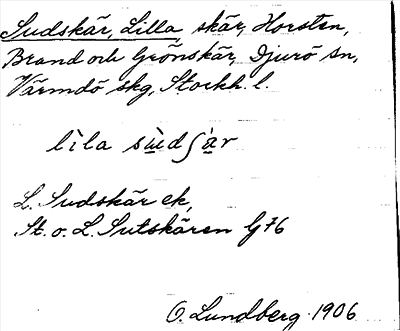 Sudskär, Lilla skär, Horsten,
Brand och Grönskär, Djurö sn,
Värmdö skg, Stockh. l.
lìla sùdʃàr
L. Sudskär ek,
St. o. L. Sutskären G76
O Lundberg 1906